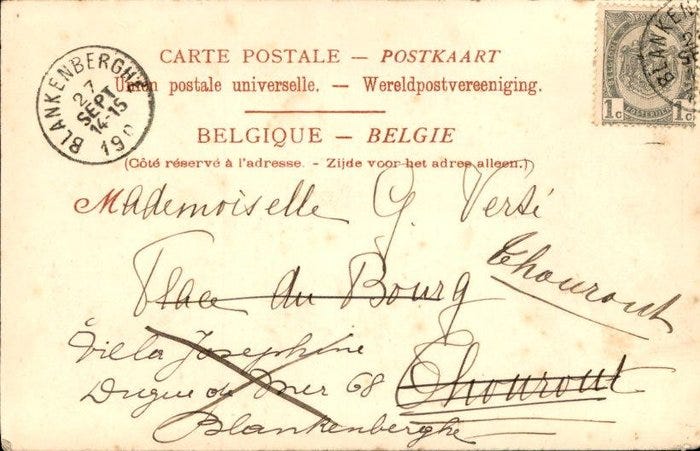 CARTE POSTALE — POSTKAART
Union postale universelle. — Wereldpostvereeniging.
BELGIQUE — BELGIE
(Côté réservé à l'adresse. - Zijde voor het adres alleen.)
BLANKENBERGHE
27
SEPT
14-15
190
BLANKEN
1c 1c
Mademoiselle G. Versé
Place du Bourg
Thourout
Thourout
Villa Josephine
Digue de Mer 68
Blankenberghe